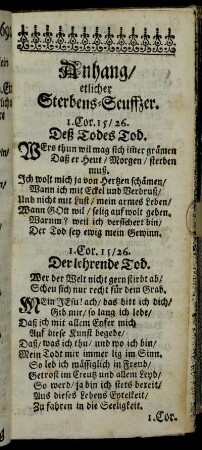 Anhang/
etlicher
Sterbens-Seuffzer.
1. Cor. 15/26.
Deß Todes Tod.
WErs thun wil mag sich im̃er grämen
Daß er Heut/ Morgen/ sterben
muß.
Ich wolt mich ja von Hertzen schämen/
Wann ich mit Eckel und Verdruß/
Und nicht mit Lust/ mein armes Leben/
Wann GOtt wil/ selig auf wolt geben.
Warum? weil ich versichert bin/
Der Tod sey ewig mein Gewinn.
1. Cor. 15/26.
Der lehrende Tod.
Wer der Welt nicht gern stirbt ab/
Scheu sich nur recht für dem Grab.
MEin JEsu! ach/ das bitt ich dich/
Gib mir/ so lang ich lebe/
Daß ich mit allem Eyfer mich
Auf diese Kunst begebe/
Daß/ was ich thu/ und wo ich bin/
Mein Todt mir immer lig im Sinn.
So leb ich mässiglich in Freud/
Getrost im Creutz und allem Leyd/
So werd/ ja bin ich stets bereit/
Aus dieses Lebens Eytelkeit/
Zu fahren in die Seeligkeit.
1. Cor.